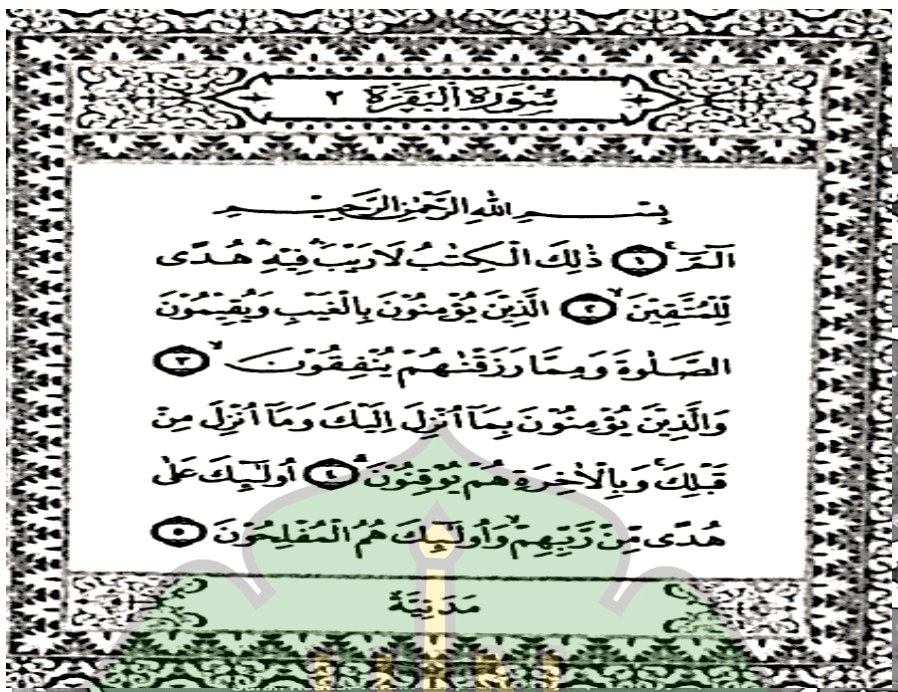 سُوْرَةُ الْبَقَرَةِ ٢
بِسْمِ اللهِ الرَّحْمٰنِ الرَّحِيْمِ
الٓمّٓ ۚ ﴿١﴾ ذٰلِكَ الْكِتٰبُ لَا رَيْبَ ۛ فِيْهِ ۛ هُدًى
لِّلْمُتَّقِيْنَ ۙ ﴿٢﴾ الَّذِيْنَ يُؤْمِنُوْنَ بِالْغَيْبِ وَيُقِيْمُوْنَ
الصَّلٰوةَ وَمِمَّا رَزَقْنٰهُمْ يُنْفِقُوْنَ ۙ ﴿٣﴾
وَالَّذِيْنَ يُؤْمِنُوْنَ بِمَآ اُنْزِلَ اِلَيْكَ وَمَآ اُنْزِلَ مِنْ
قَبْلِكَ ۚ وَبِالْاٰخِرَةِ هُمْ يُوْقِنُوْنَ ۗ ﴿٤﴾ اُولٰٓئِكَ عَلٰى
هُدًى مِّنْ رَّبِّهِمْ ۙ وَاُولٰٓئِكَ هُمُ الْمُفْلِحُوْنَ ﴿٥﴾
مَدَنِيَّةٌ